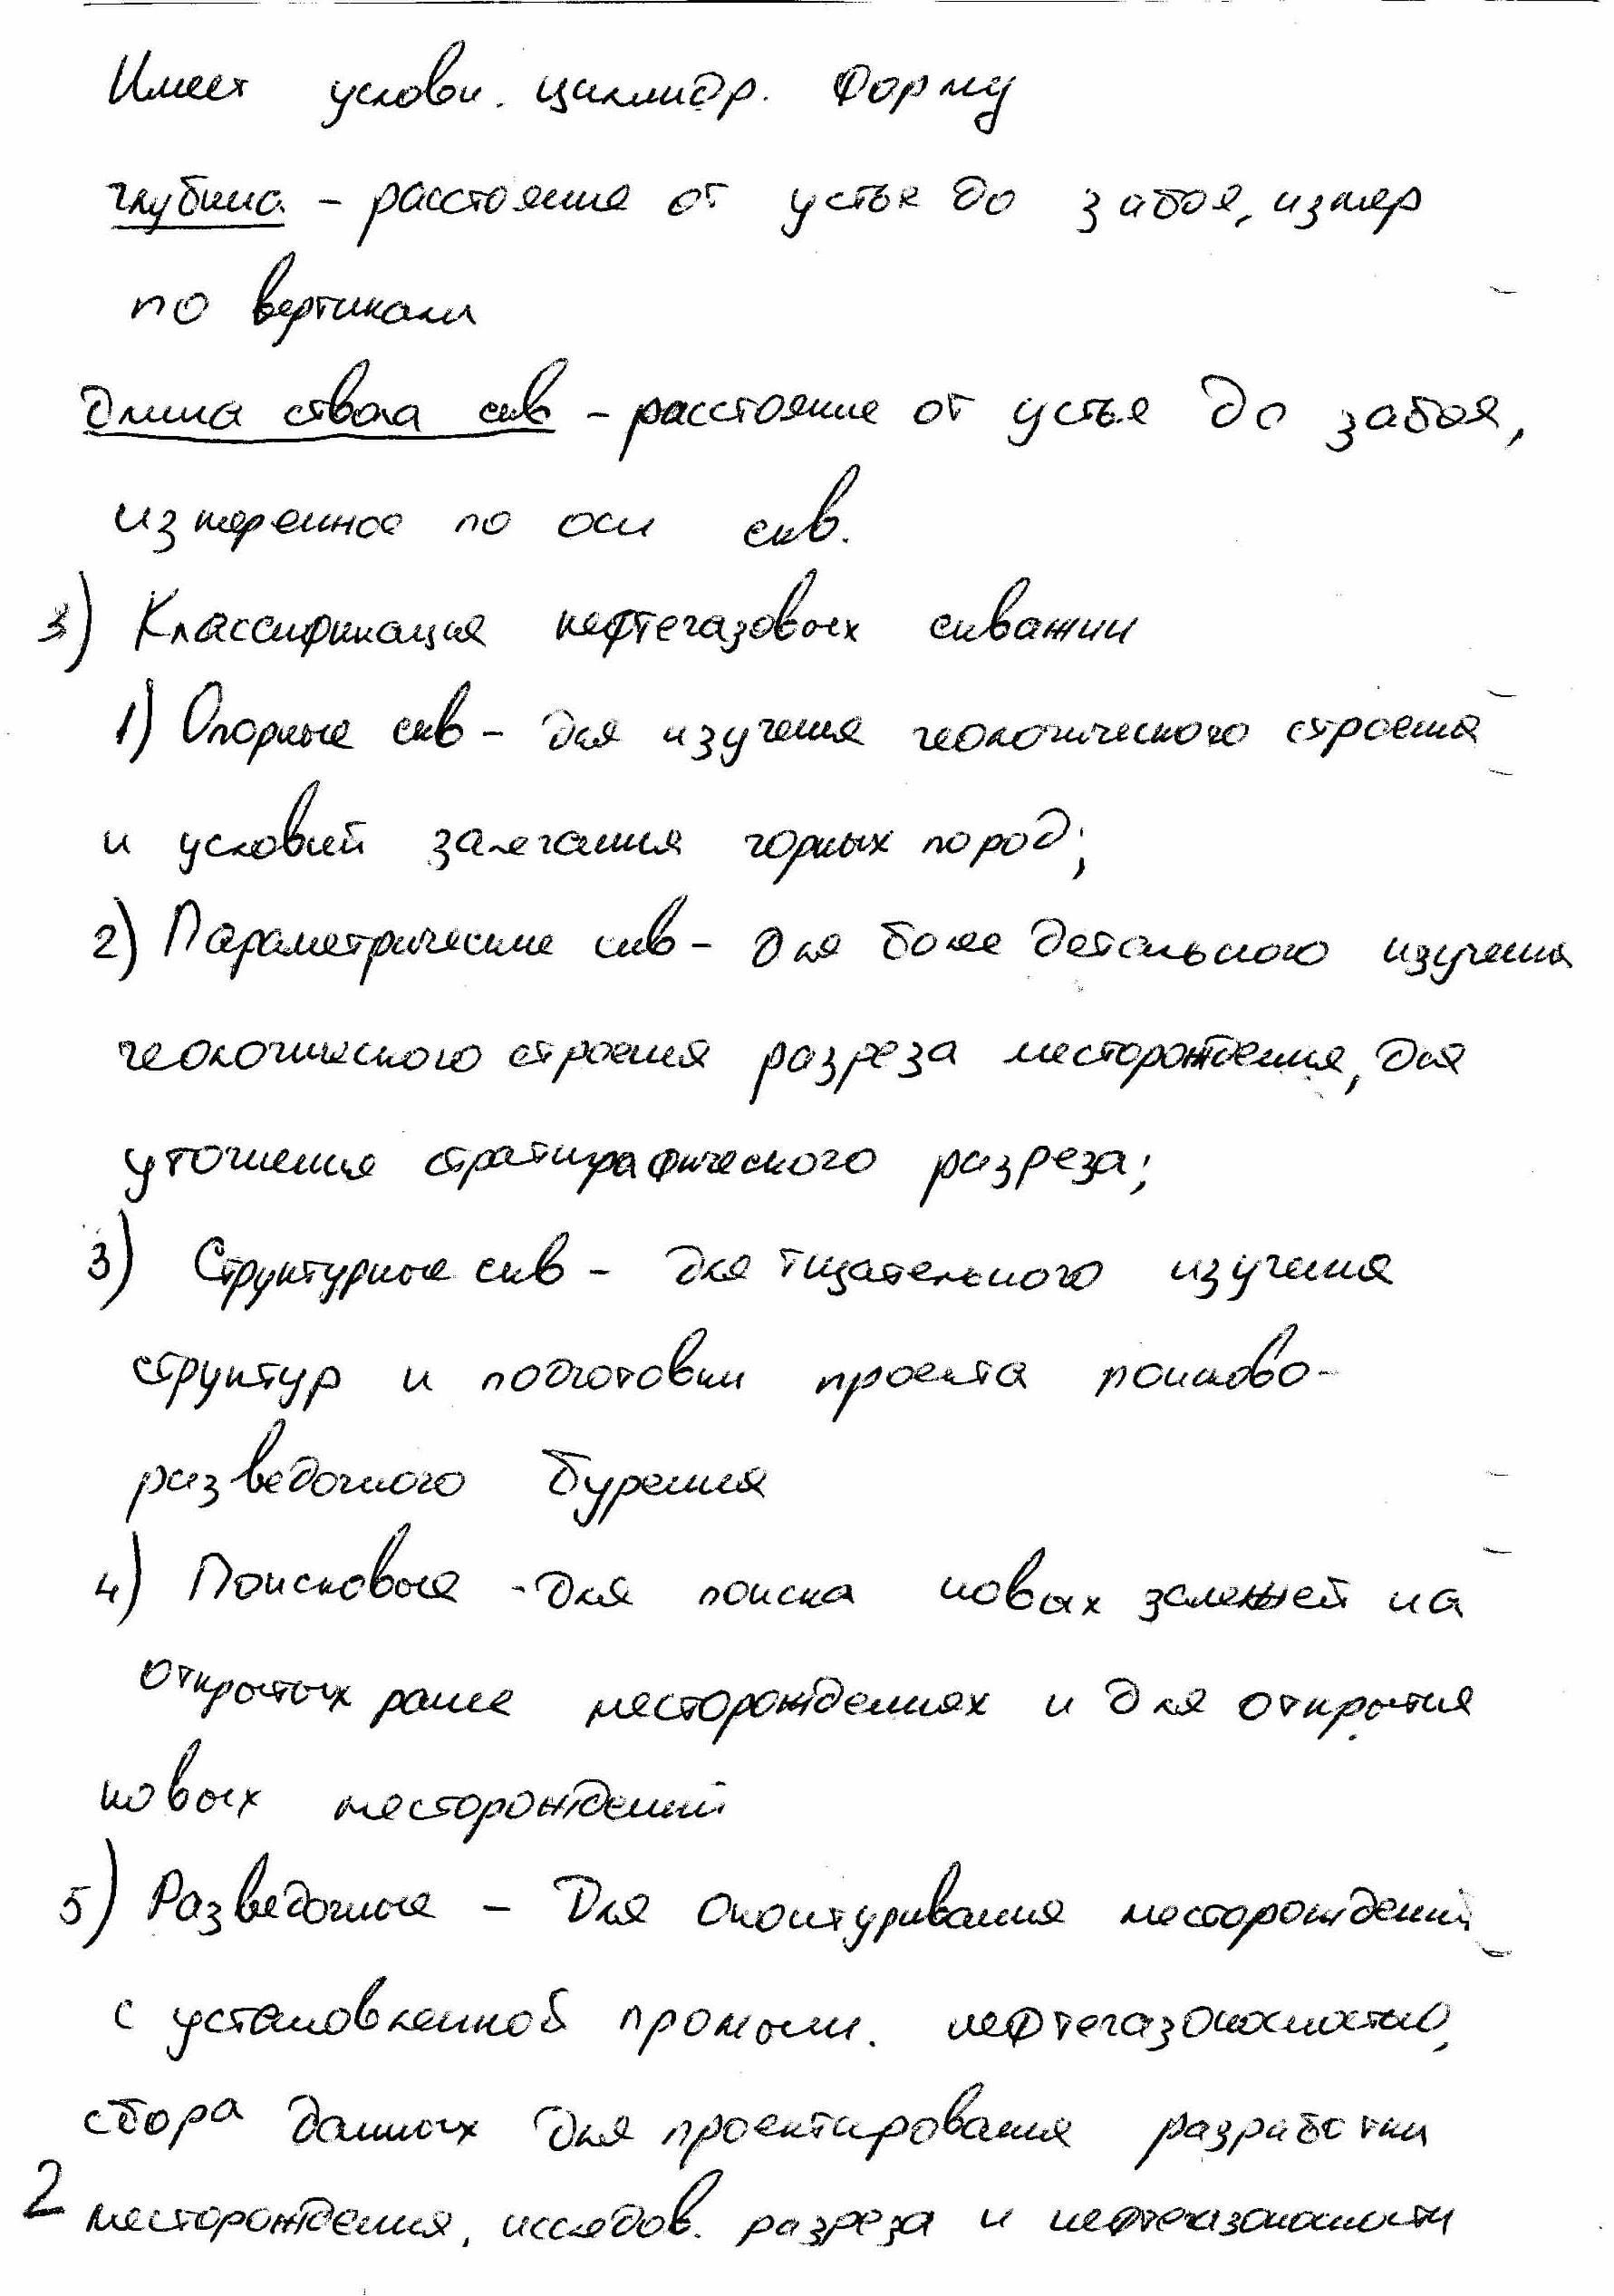 Имеет условн. цилиндр. форму
глубина - расстояние от устья до забоя, измер
по вертикали
Длина ствола скв - расстояние от устья до забоя,
измеренное по оси скв.
3) Классификация нефтегазовых скважин
1) Опорные скв - для изучения геологического строения
и условий залегания горных пород;
2) Параметрические скв - для более детального изучения
геологического строения разреза месторождения, для
уточнения стратиграфического разреза;
3) Структурные скв - для тщательного изучения
структур и подготовки проекта поисково-
разведочного бурения
4) Поисковые - для поиска новых залежей на
открытых ранее месторождениях и для открытия
новых месторождений
5) Разведочные - Для оконтуривания месторождений
с установленной промышл. нефтегазоносностью,
сбора данных для проектирования разработки
2 месторождения, исследов. разреза и нефтегазоносности